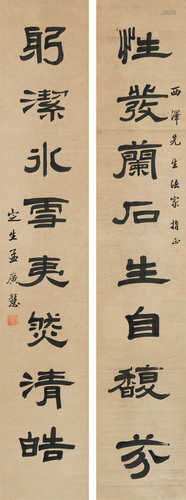 西澤先生法家指正
性發蘭石生自馥芬
躬潔冰雪夷然清皓
定生孟廣慧